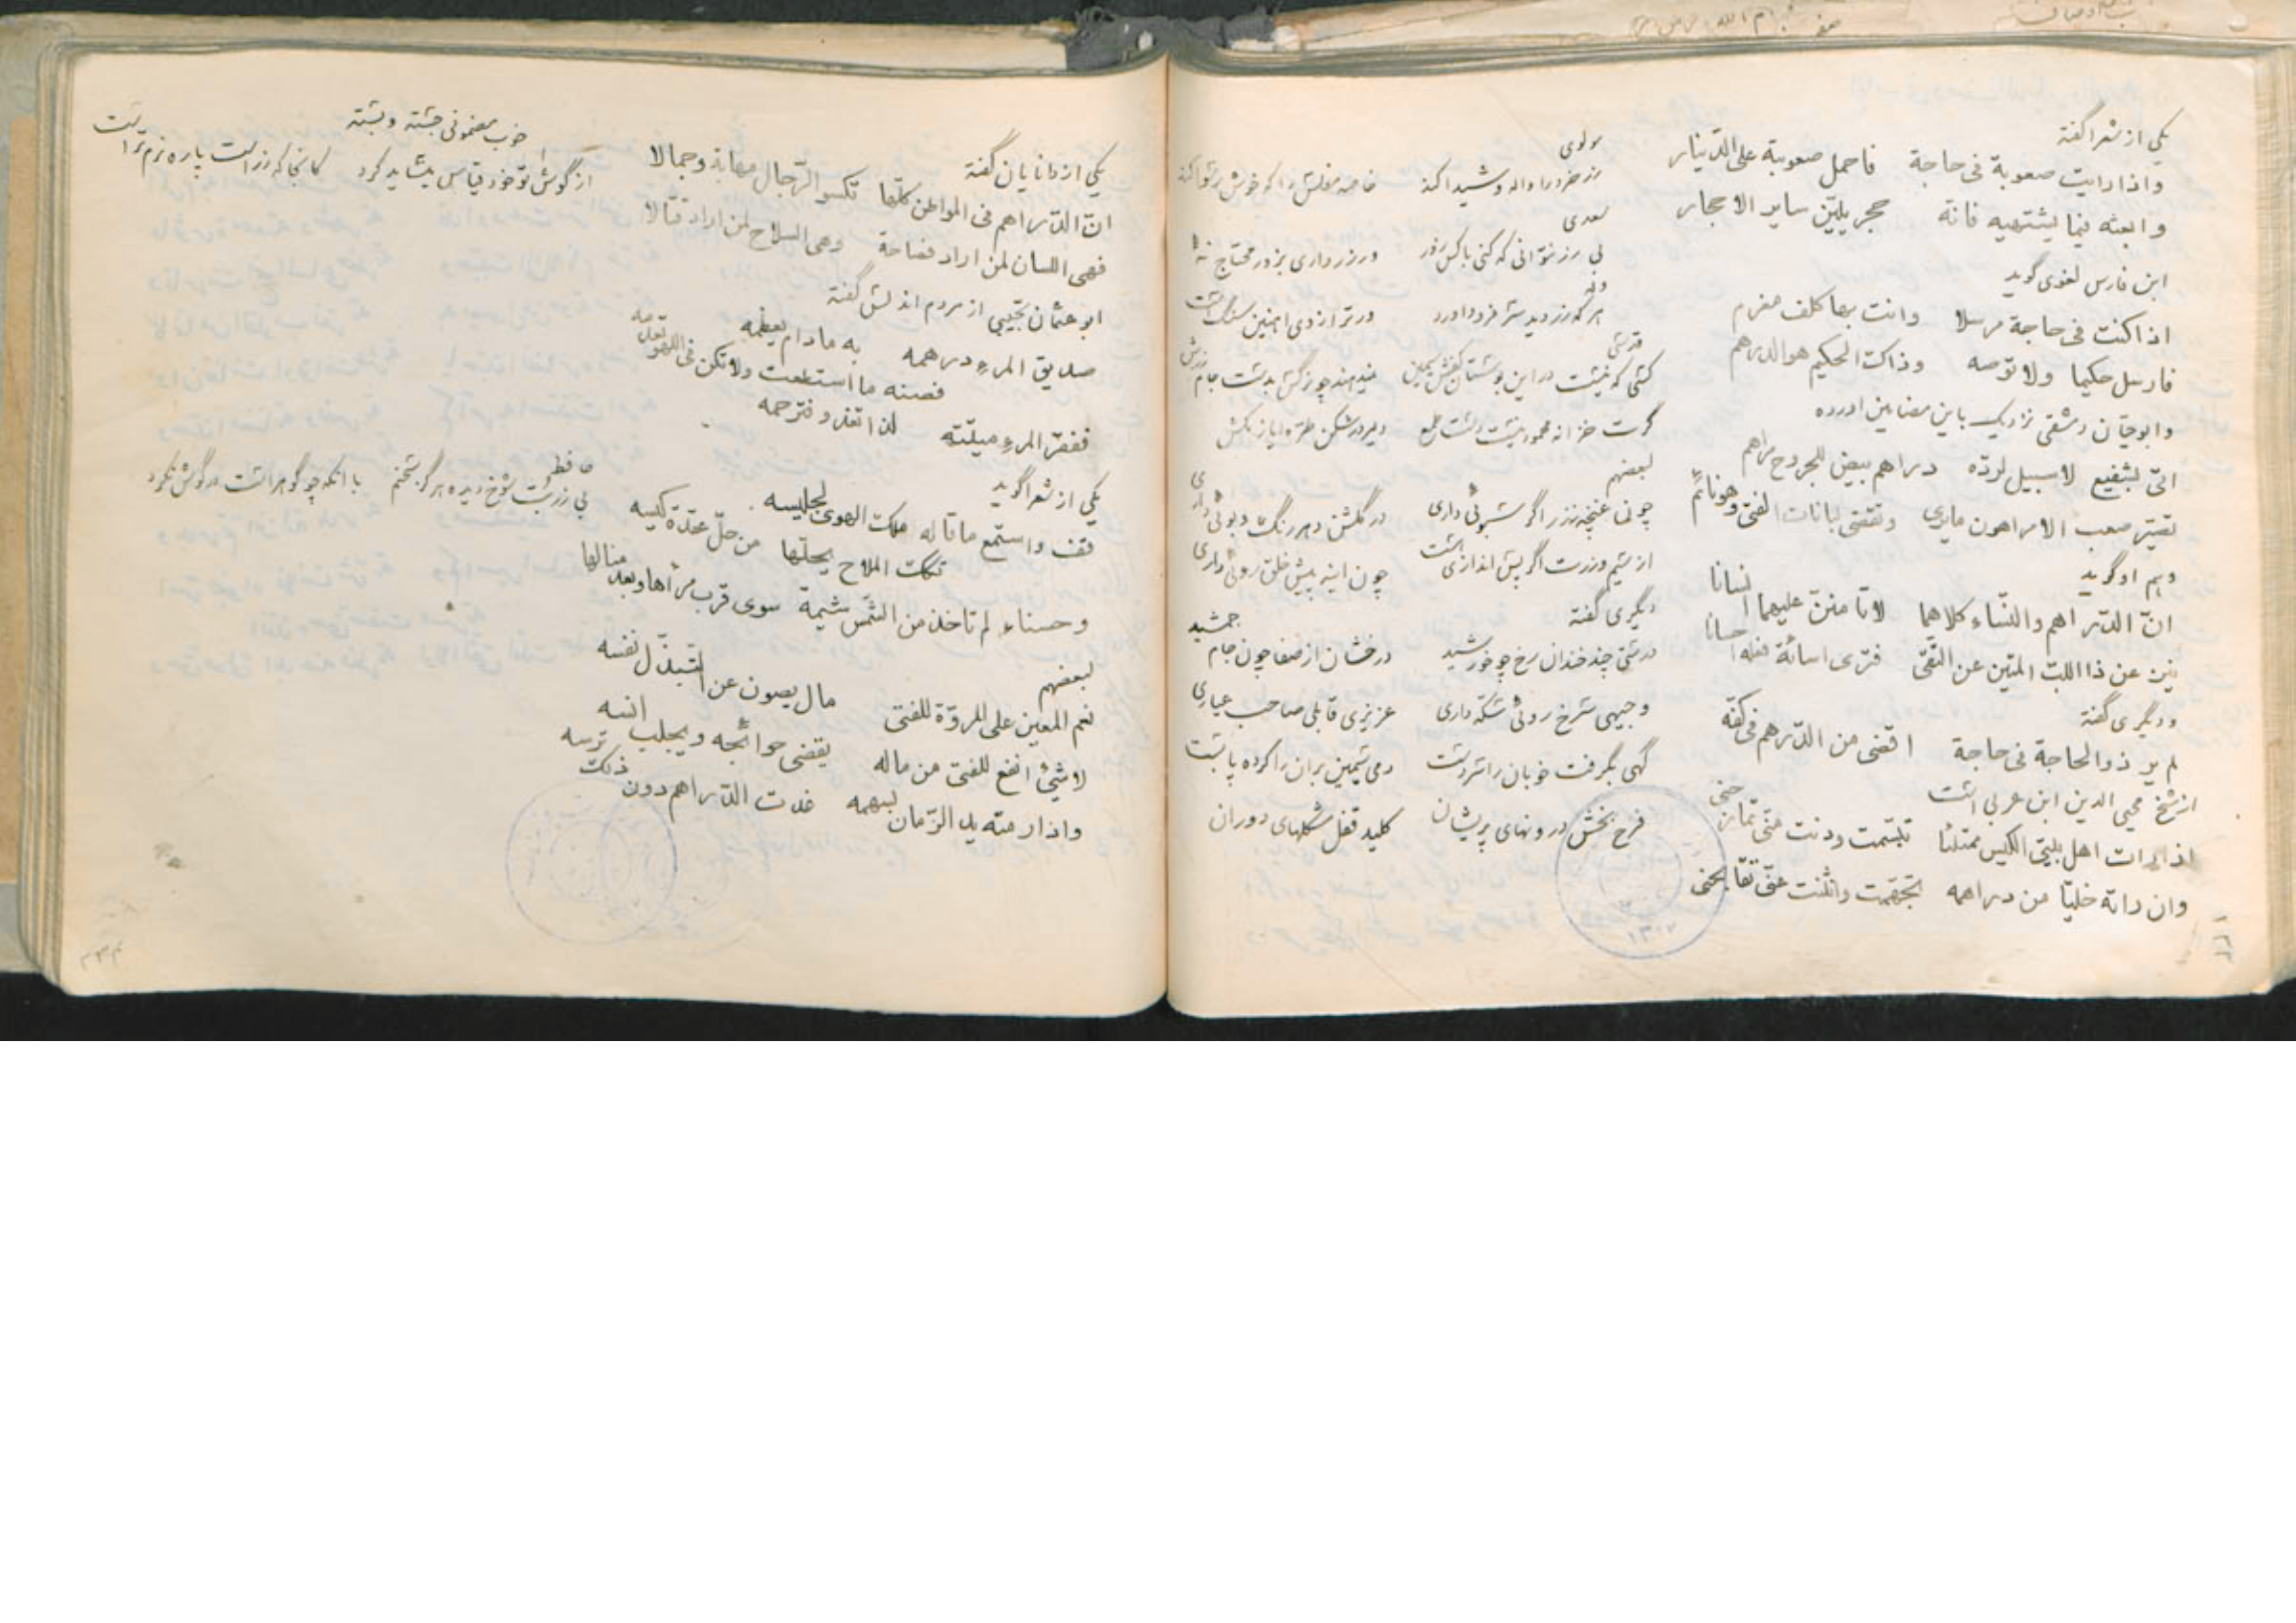 یکی از شعرا گفته
واذا رایت صعوبة فی حاجة فاحمل صعوبته علی الدّینار
وابعثه فیما یشتهیه فانّه حجر یلیّن سایر الاحجار
ابن فارس لغوی گوید
اذا کنت فی حاجة مرسلا وانت بها کلف مغرم
فارسل حکیما ولا توصه وذاک الحکیم هو الدرهم
وابوحیّان دمشقی نزدیک باین مضامین اورده
اتی بشفیع لا سبیل لردّه دراهم بیض للجروح مراهم
تصیّر صعب الامر اهون مایری وتقضی لبانات الفتی وهو نائم
وهم او گوید
انّ الدّراهم والنّساء کلاهما لا تامننّ علیهما انسانا
ینزعن ذا اللبّ المتین عن التقی فتری اسائة فعله احسانا
ودیگری گفته
لم یر ذو الحاجة فی حاجة اقضی من الدّرهم فی کفّه
از شیخ محیی الدین ابن عربی است
اذا رات اهل بیتی الکیس ممتلئا تبسّمت ودنت منّی تمازحنی
وان راته خلیّا من دراهمه تجهّمت وانثنت عنّی تقابحنی
مولوی
زر خرد را واله و شیدا کند خاصه مفلس را که خوش رسوا کند
سعدی
بی زر نتوانی که کنی با کس زور ور زر داری بزور محتاج نهٔ
وله
هر که زر دید سر فرود اورد ور ترازوی اهنین سنگ است
قدسی
کسی که نیست در این بوستان
کرت خزانه محمود نیست دست طمع دلیر در شکن طرّه ایاز مکش
لبعضهم
چون غنچه زر اگر بسرئی داری در گلشن دهر رنگ و بوئی داری
از سیم وزرت اگر پس اندازی است چون اینه پیش خلق روئی داری
دیگری گفته
درستی چند خندان رخ چو خورشید درخشان از صفا چون جام جمشید
وجیهی سرخ روئی سکّه داری عزیزی قابلی صاحب عیاری
گهی بگرفت خوبان را سر دست دمی سیمین بران را کرده پابست
فرح بخش درونهای پریشان کلید قفل مشکلهای دوران
یکی از دانایان گفته
انّ الدّراهم فی المواطن کلّها تکسو الرّجال مهابة وجمالا
فهی اللسان لمن اراد فصاحة وهی السلاح لمن اراد قتالا
ابو عثمان تجیبی از مردم اندلس گفته
صدیق المرء درهمه به مادام یعظمه
فصنه ما استطعت ولا تکن فی اللهو تعدمه
ففقر المرء میتته
یکی از شعرا گوید
قف واستمع ما قاله ملک الهوی لجلیسه
نکت الملاح یحلّها من حلّ عقدة کیسه
وحسناء لم تاخذ من الشّمس شیمة سوی قرب مرأها وبعد منالها
لبعضهم
نعم المعین علی المروّة للفتی مال یصون عن التبذّل نفسه
لا شیئ انفع للفتی من ماله یقضی حوائجه ویجلب انسه
واذا رمته ید الزّمان بسهمه غدت الدّراهم دون ذلک ترسه
خوب مضمونی جسته و بسته
از گوش تو خود قیاس میشاید کرد کانجا که زر است پاره نرم تر است
حافظ
بی زر بت شوخ دیده هرگز سخنم با انکه چو گوهر است در گوش نکرد